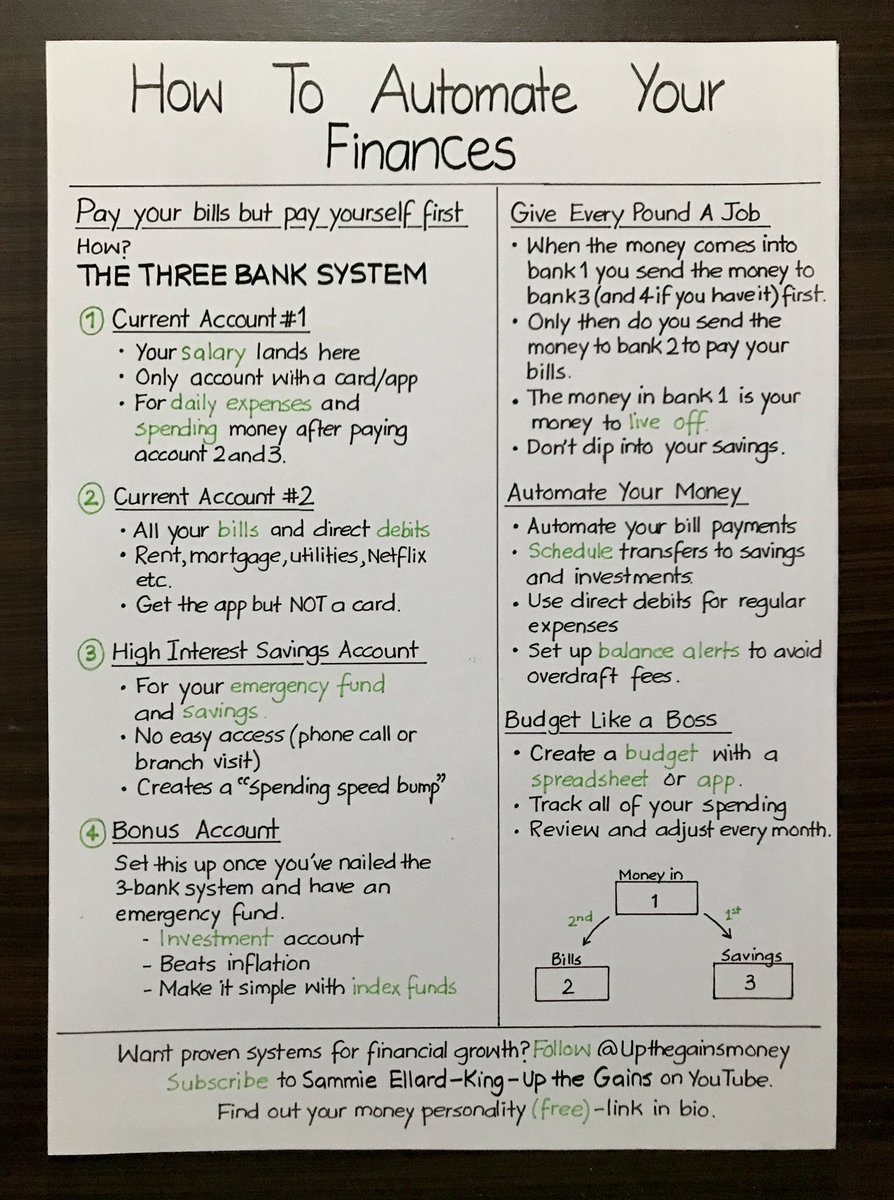 How To Automate Your
Finances
Pay your bills but pay yourself first
How?
THE THREE BANK SYSTEM
1 Current Account #1
• Your salary lands here
• Only account with a card/app
• For daily expenses and
spending money after paying
account 2 and 3.
2 Current Account #2
• All your bills and direct debits
• Rent, mortgage, utilities, Netflix
etc.
• Get the app but NOT a card.
3 High Interest Savings Account
• For your emergency fund
and savings.
• No easy access (phone call or
branch visit)
• Creates a "spending speed bump"
4 Bonus Account
Set this up once you've nailed the
3-bank system and have an
emergency fund.
- Investment account
- Beats inflation
- Make it simple with index funds
Give Every Pound A Job
• When the money comes into
bank 1 you send the money to
bank 3 (and 4 if you have it) first.
• Only then do you send the
money to bank 2 to pay your
bills.
• The money in bank 1 is your
money to live off.
• Don't dip into your savings.
Automate Your Money
• Automate your bill payments
• Schedule transfers to savings
and investments.
• Use direct debits for regular
expenses
• Set up balance alerts to avoid
overdraft fees.
Budget Like a Boss
• Create a budget with a
spreadsheet or app.
• Track all of your spending
• Review and adjust every month.
Money in
1
2nd 1st
Bills Savings
2 3
Want proven systems for financial growth? Follow @Upthegainsmoney
Subscribe to Sammie Ellard-King-Up the Gains on YouTube.
Find out your money personality (free) - link in bio.